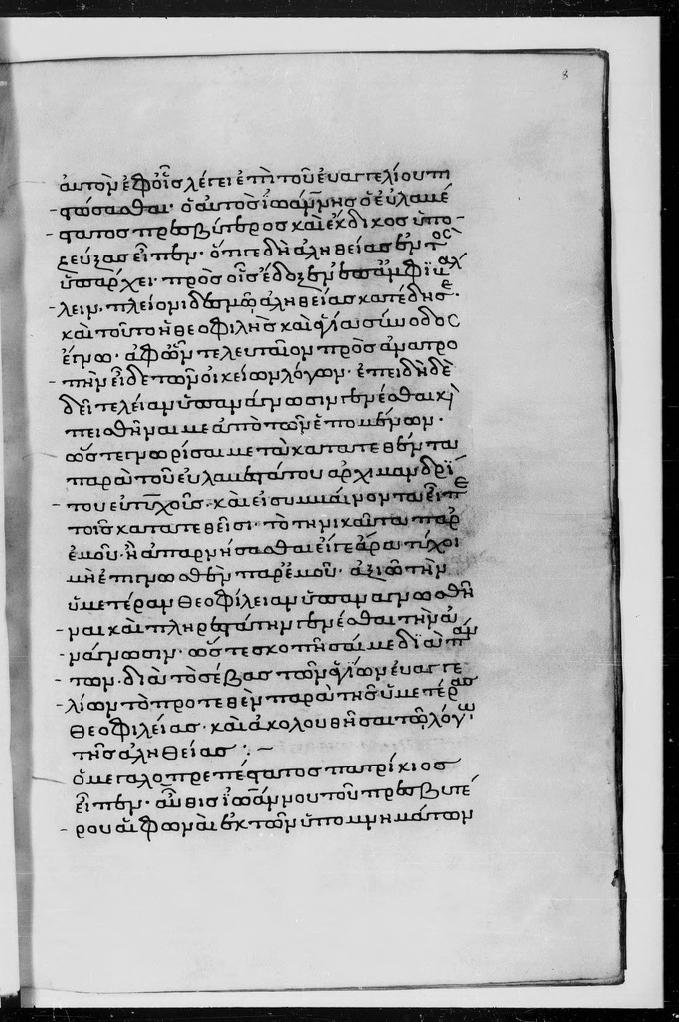 8
αυτὸν ἐφ οἷς λέγει ἐπὶ τοῦ ἐυαγγελίου πι
στώσασθαι· ὁ αυτὸς ϊωάννης ὁ ἐυλαβέ
στατος πρεσβύτερος καὶ ἔκδικος ὑπο
ζεύξας εἶπεν· ὅτιπερ δὴ ἀληθείας ἐν
ὑπάρχει· πρὸς οἷς ἔδοξεν ἐπαμφιβάλ
λειν· πλεῖον ϊδεῖν ἀληθείας κατέδησε·
καὶ τοῦτο ἡ θεοφιλὴς καὶ ἁγία σύνοδος
ἔγνω· ἀφ ὧν τελευταῖον πρὸς
τὴν εἶδε τῶν οἰκείων λόγων· ἐπειδὴ δὲ
δεῖ τελείαν ὑπανάγνωσιν γενέσθαι κὶ
πεισθῆναι με ἀπὸ τῶν ἑπομένων·
ὥστε γνωρίσαι με τὰ κατατεθέντα
παρὰ τοῦ ἐυλαβεστάτου ἀρχιμανδρί
του ἐυτυχοῦς· καὶ εἰ συμβαίνοντα εἴη
τοῖς κατατεθεῖσι· τὸ τηνικαῦτα παρ
ἐμοῦ· ἢ ἀπαρνήσασθαι εἴτε ἄρα τύχοι
μὴ ἐπιγνωσθὲν παρ ἐμοῦ· ἀξιῶ τὴν
ὑμετέραν θεοφίλειαν ὑπαναγνωσθῆ
ναι καὶ πληρεστάτην γενέσθαι τὴν ἀ
νάγνωσιν· ὥστε σκοπῆσαί με διὰ πάν
των· διὰ τὸ σέβας τῶν ἁγίων ἐυαγγε
λίων τὸ προτεθὲν παρὰ τῆς ὑμετέρας
θεοφιλείας· καὶ ἀκολουθῆσαι τῷ λόγω
τῆς ἀληθείας :~
ὁ μεγαλοπρεπέστατος πατρίκιος
εἶπεν· αὖθις ϊωάννου τοῦ πρεσβυτέ
ρου ἀφ ὧν ἐκ τῶν ὑπομνημάτων